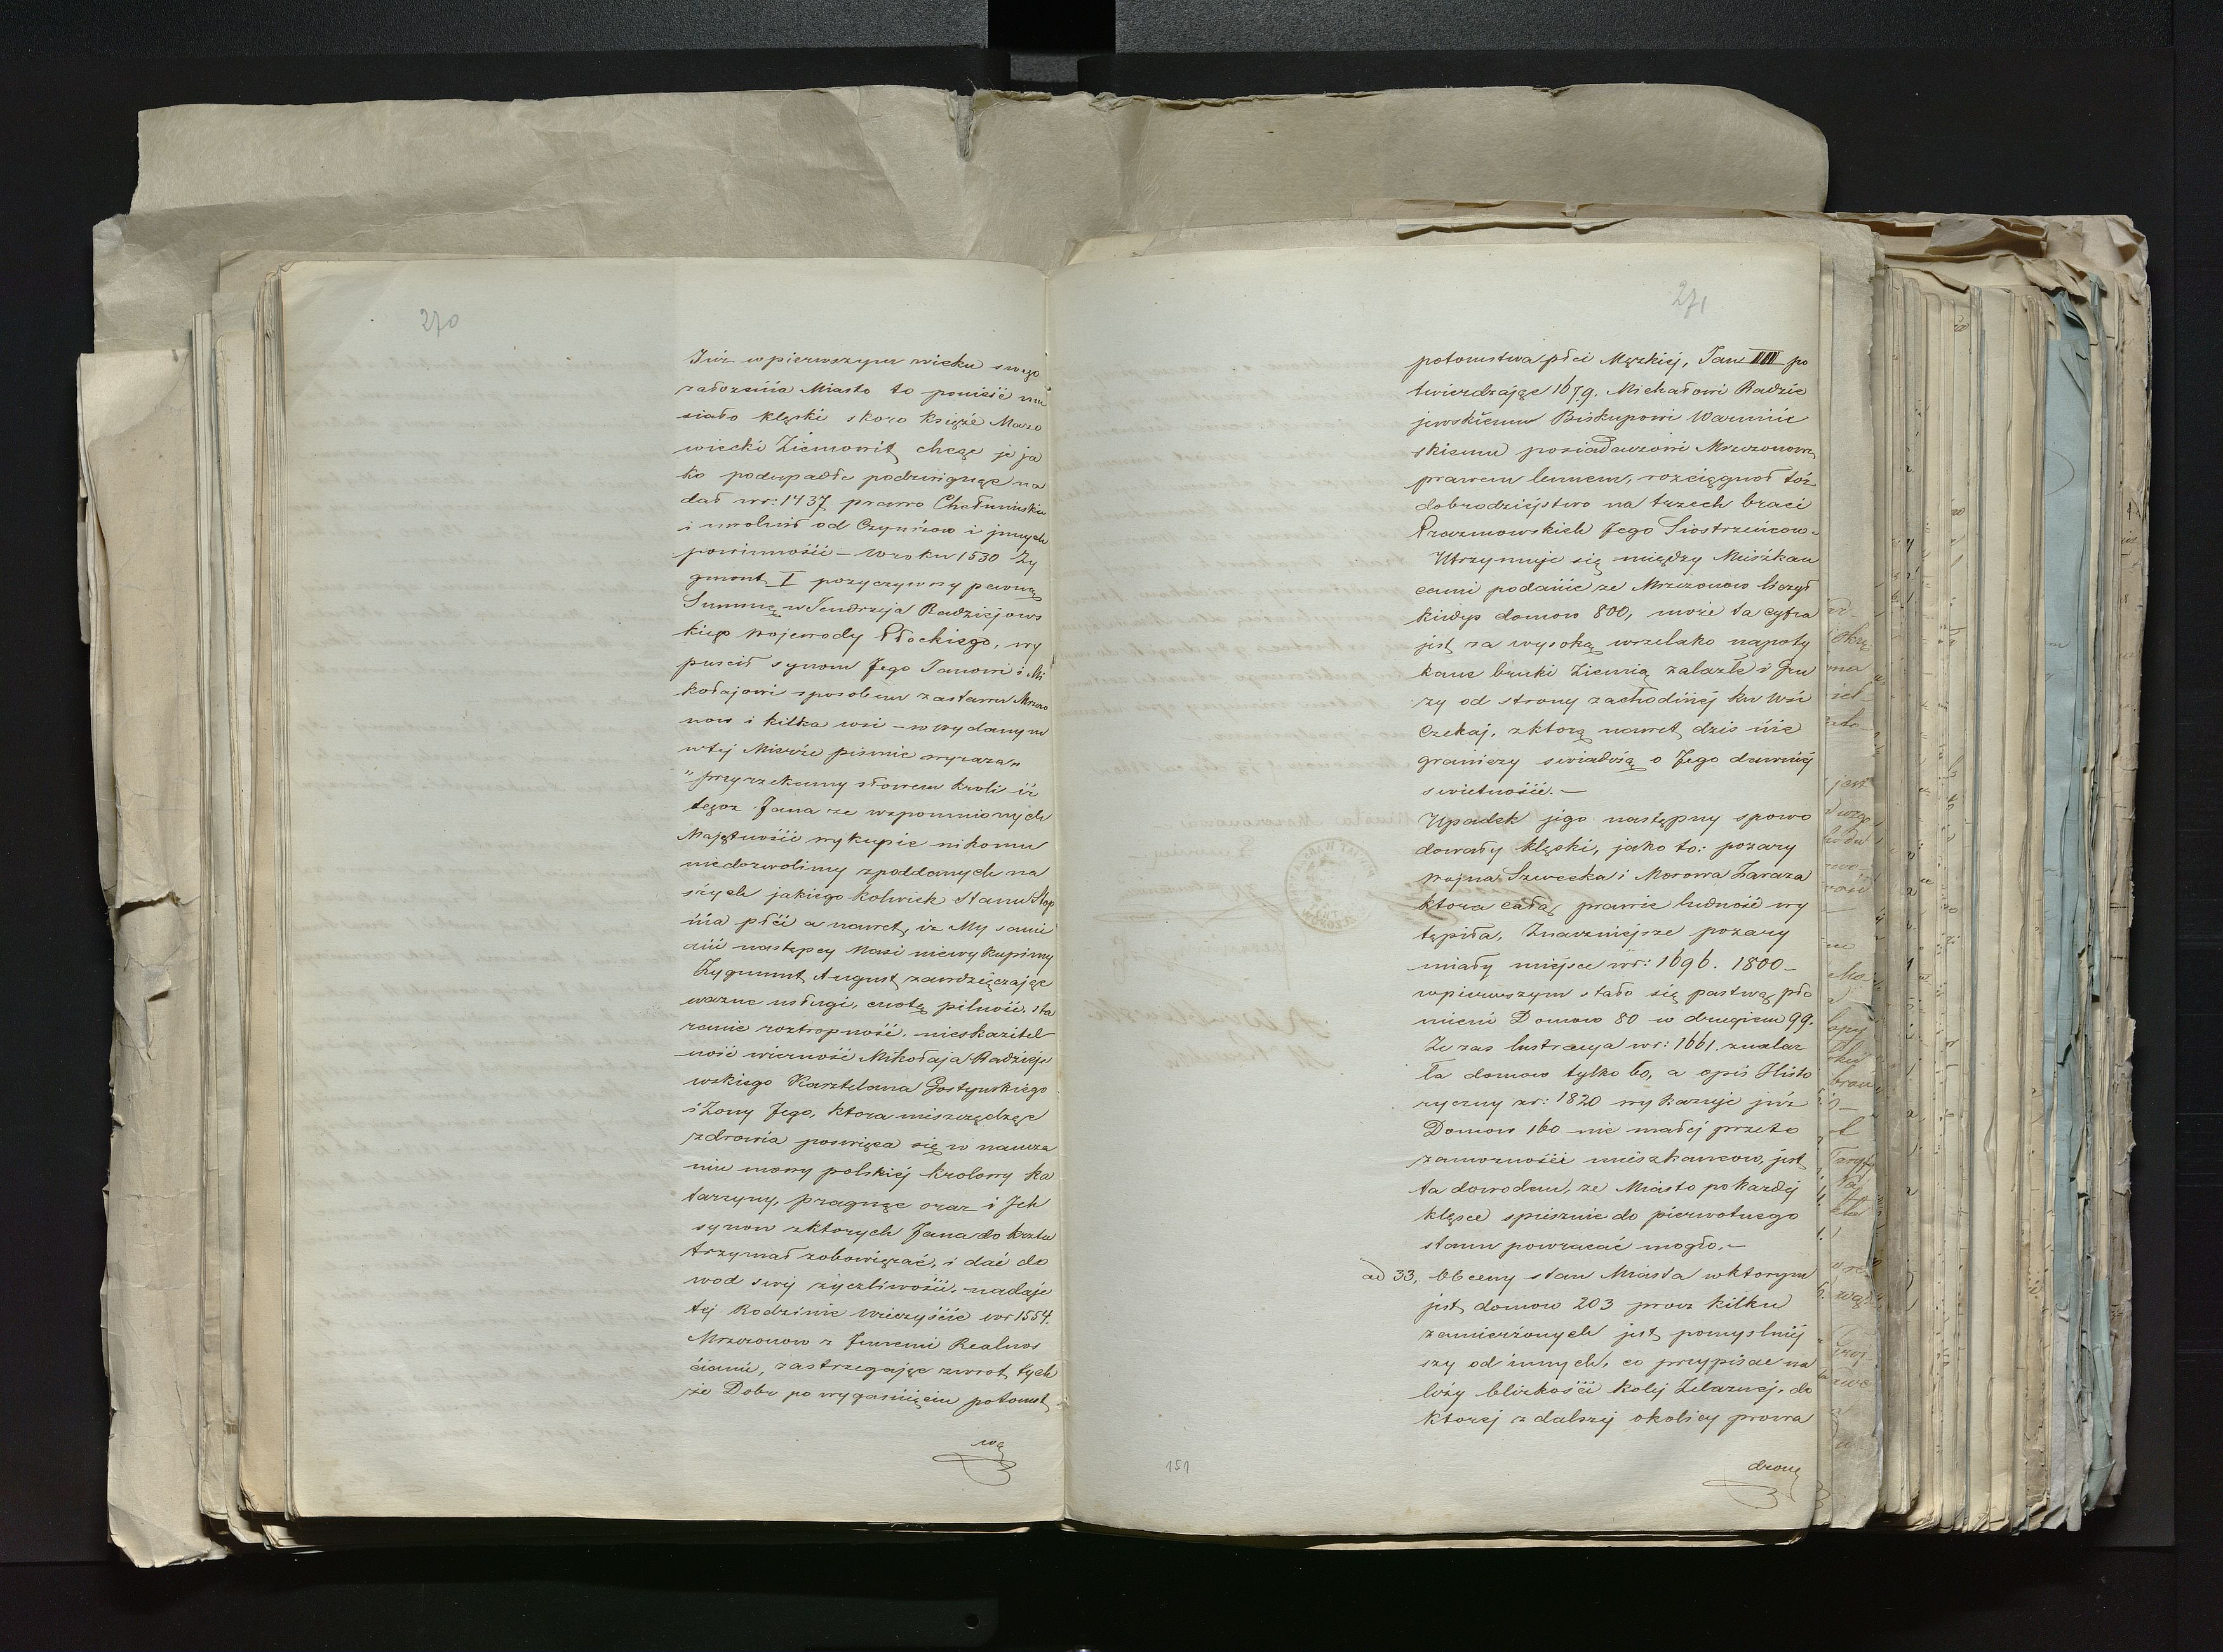 270
Już w pierwszym wieku swego
założenia Miasto to ponieść mu
siało klęski skoro Książe Mazo
wiecki Ziemowit, chcąc je ja
ko podupadłe podzwignąc na
dał wr: 1437 prawo Chełmińskie
i uwolnił od Czynszow i jnnych
powinności – w roku 1530 Zy
gmont I pozyczywszy pewną
Summę w Jendrzeja Radziejows
kiego Wojewody Płockiego, wy
puscił synom Jego Janowi i Mi
kołajowi sposobem zastawu Mszczo
now i kilka wsi – w wydanym
w tej Mierze pismie wyraza„
"przyrzekamy słowem Kroli iż
tegoz Jana ze wspomnionych
Majętności wykupic nikomu
niedozwolimy z poddanych na
szych jakiego kolwiek Stanu Stop
nia płci a nawet, iz My sami
ani nastepcy Nasi niewykupimy
Zygmunt August, zawdzięczając
wazne usługi, cnotę, pilność, sta
ranie roztropność, nieskazitel
ność wierność Mikołaja Radzieje
wskiego Kasztelana Gostynskiego
i Żony Jego, ktora nieszczędząc
zdrowia poswięca się w naucza
niu mowy polskiej krolowy Ka
tarzyny, pragnąc oraz i Ich
synow z ktorych Jana do krztu
trzymał zobowięzać, i dać do
wod swej zyczliwości, nadaje
tej Rodzinie Wieczyście wr 1554.
Mszczonow z Jnnemi Realnos
ciami, zastrzegając zwrot tych
że Dobr po wygaśnięciu potomst
wa
271
potomstwa płci Męzkiej, Jan III po
twierdzając 1679. Michałowi Radzie
jewskiemu Biskupowi Warmiń
skiemu posiadaczowi Mszczonowa
prawem lennem, rozciągnoł toż
dobrodziejstwo na trzech braci
Prazmowskich Jego Siostrzeńcow.
Utrzymuje się między Mieszkan
cami podanie ze Mszczonow liczył
kiedys domow 800, może ta cyfra
jest za wysoką wszelako napoty
kane bruki Ziemią zalazłe i gru
zy od strony zachodniej ku Wsi
Czekaj, z ktorą nawet dzis nie
graniczy swiadczą o Jego dawniej
swietności. –
Upadek jego następny spowo
dowały klęski, jako to: pozary
Wojna Szwecka i Morowa Zaraza
ktora całą prawie ludność wy
tępiła, Znaczniejsze pozary
miały miejsce wr: 1696. 1800 –
w pierwszym stało się pastwą pło
mieni Domow 80 w drugiem 99.
Ze zas lustracya wr: 1661. znalaz
ła domow tylko 60, a opis Histo
ryczny zr: 1820 wykazuje już
Domow 160 nie małej przeto
zamozności mieszkancow, jest
ta dowodem, ze Miasto po każdej
klęsce spiesznie do pierwotnego
stanu powracać mogło. –
ad 33, Obceny stan Miasta w ktorym
jest domow 203 procz kilku
zamierzonych jest pomyslniej
szy od innych, co przypisac na
leży blizkości Kolej Zelaznej, do
ktorej z dalszej okolicy prowa
dzone
151